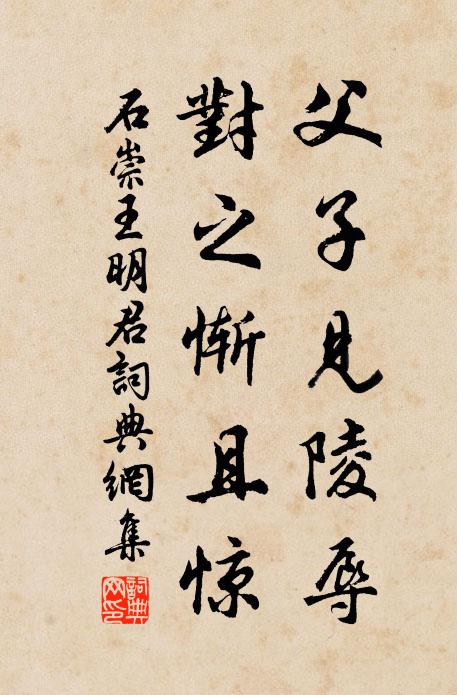 父子見陵辱
對之慚且惊
石崇王明君詞典網集
詞典网印